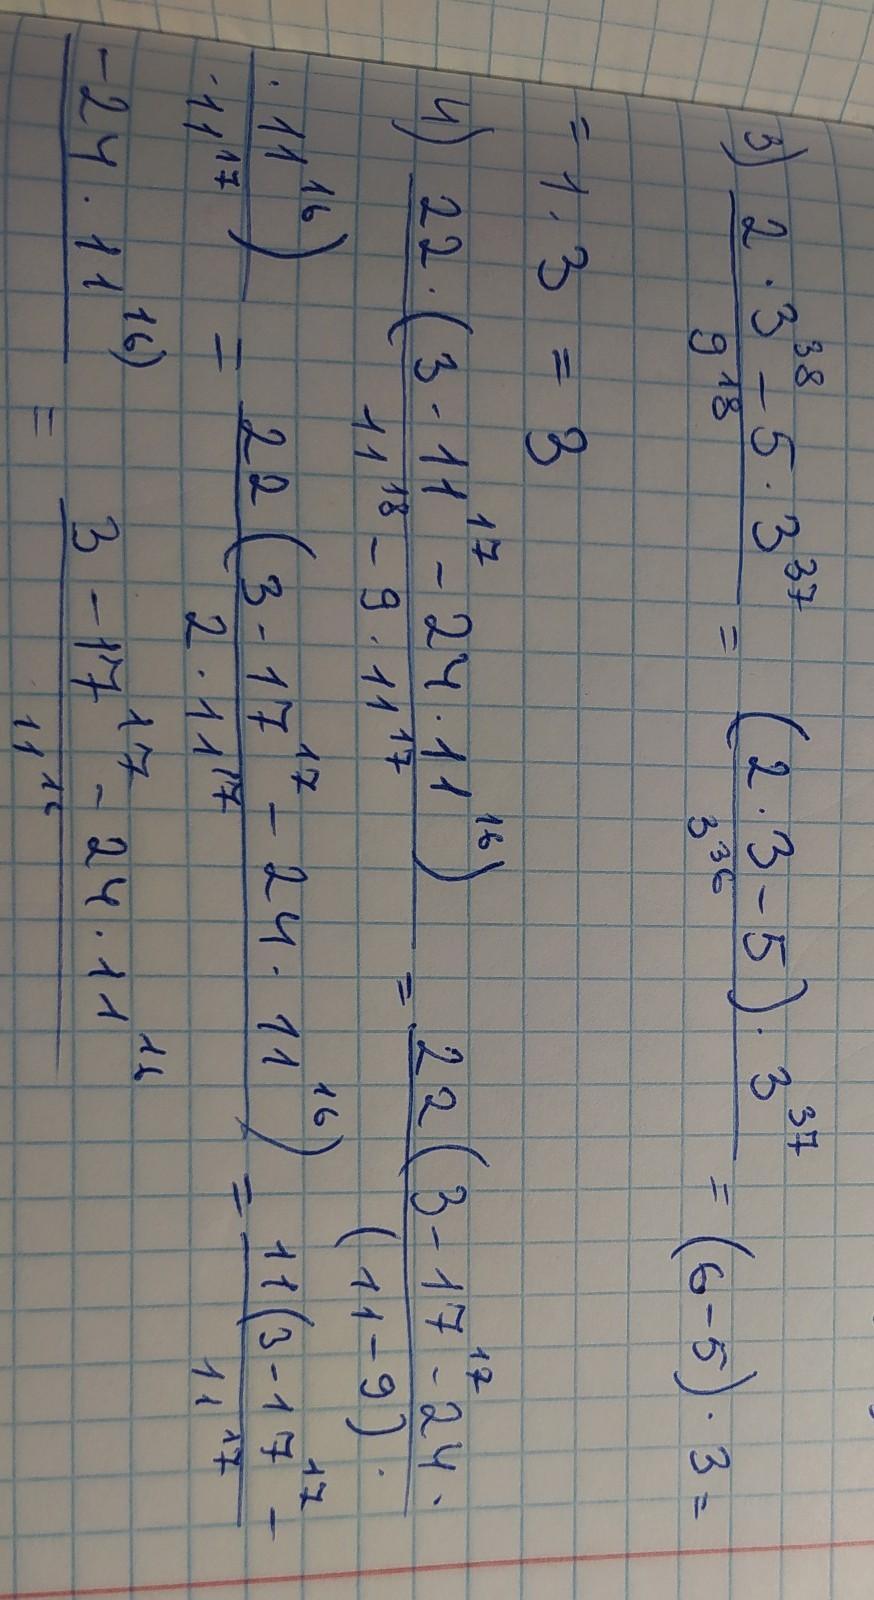 3) (2 · 3^38 − 5 · 3^37) / 9^18 = ((2 · 3 − 5) · 3^37) / 3^36 = (6 − 5) · 3 =
= 1 · 3 = 3
4) (22 · (3 · 11^17 − 24 · 11^16)) / (11^18 − 9 · 11^17) = (22 (3 − 17^17 − 24 ·) / ((11 − 9) ·
(· 11^16)) / (· 11^17) = (22 (3 − 17^17 − 24 · 11^16)) / (2 · 11^17) = (11 (3 − 17^17 −) / (11^17)
(− 24 · 11^16)) = (3 − 17^17 − 24 · 11^16) / 11^16